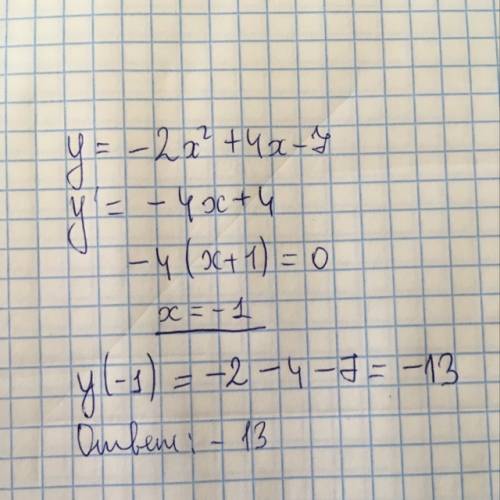 y = -2x² + 4x - 7
y' = -4x + 4
-4(x+1) = 0
x = -1
y(-1) = -2 - 4 - 7 = -13
Ответ: -13